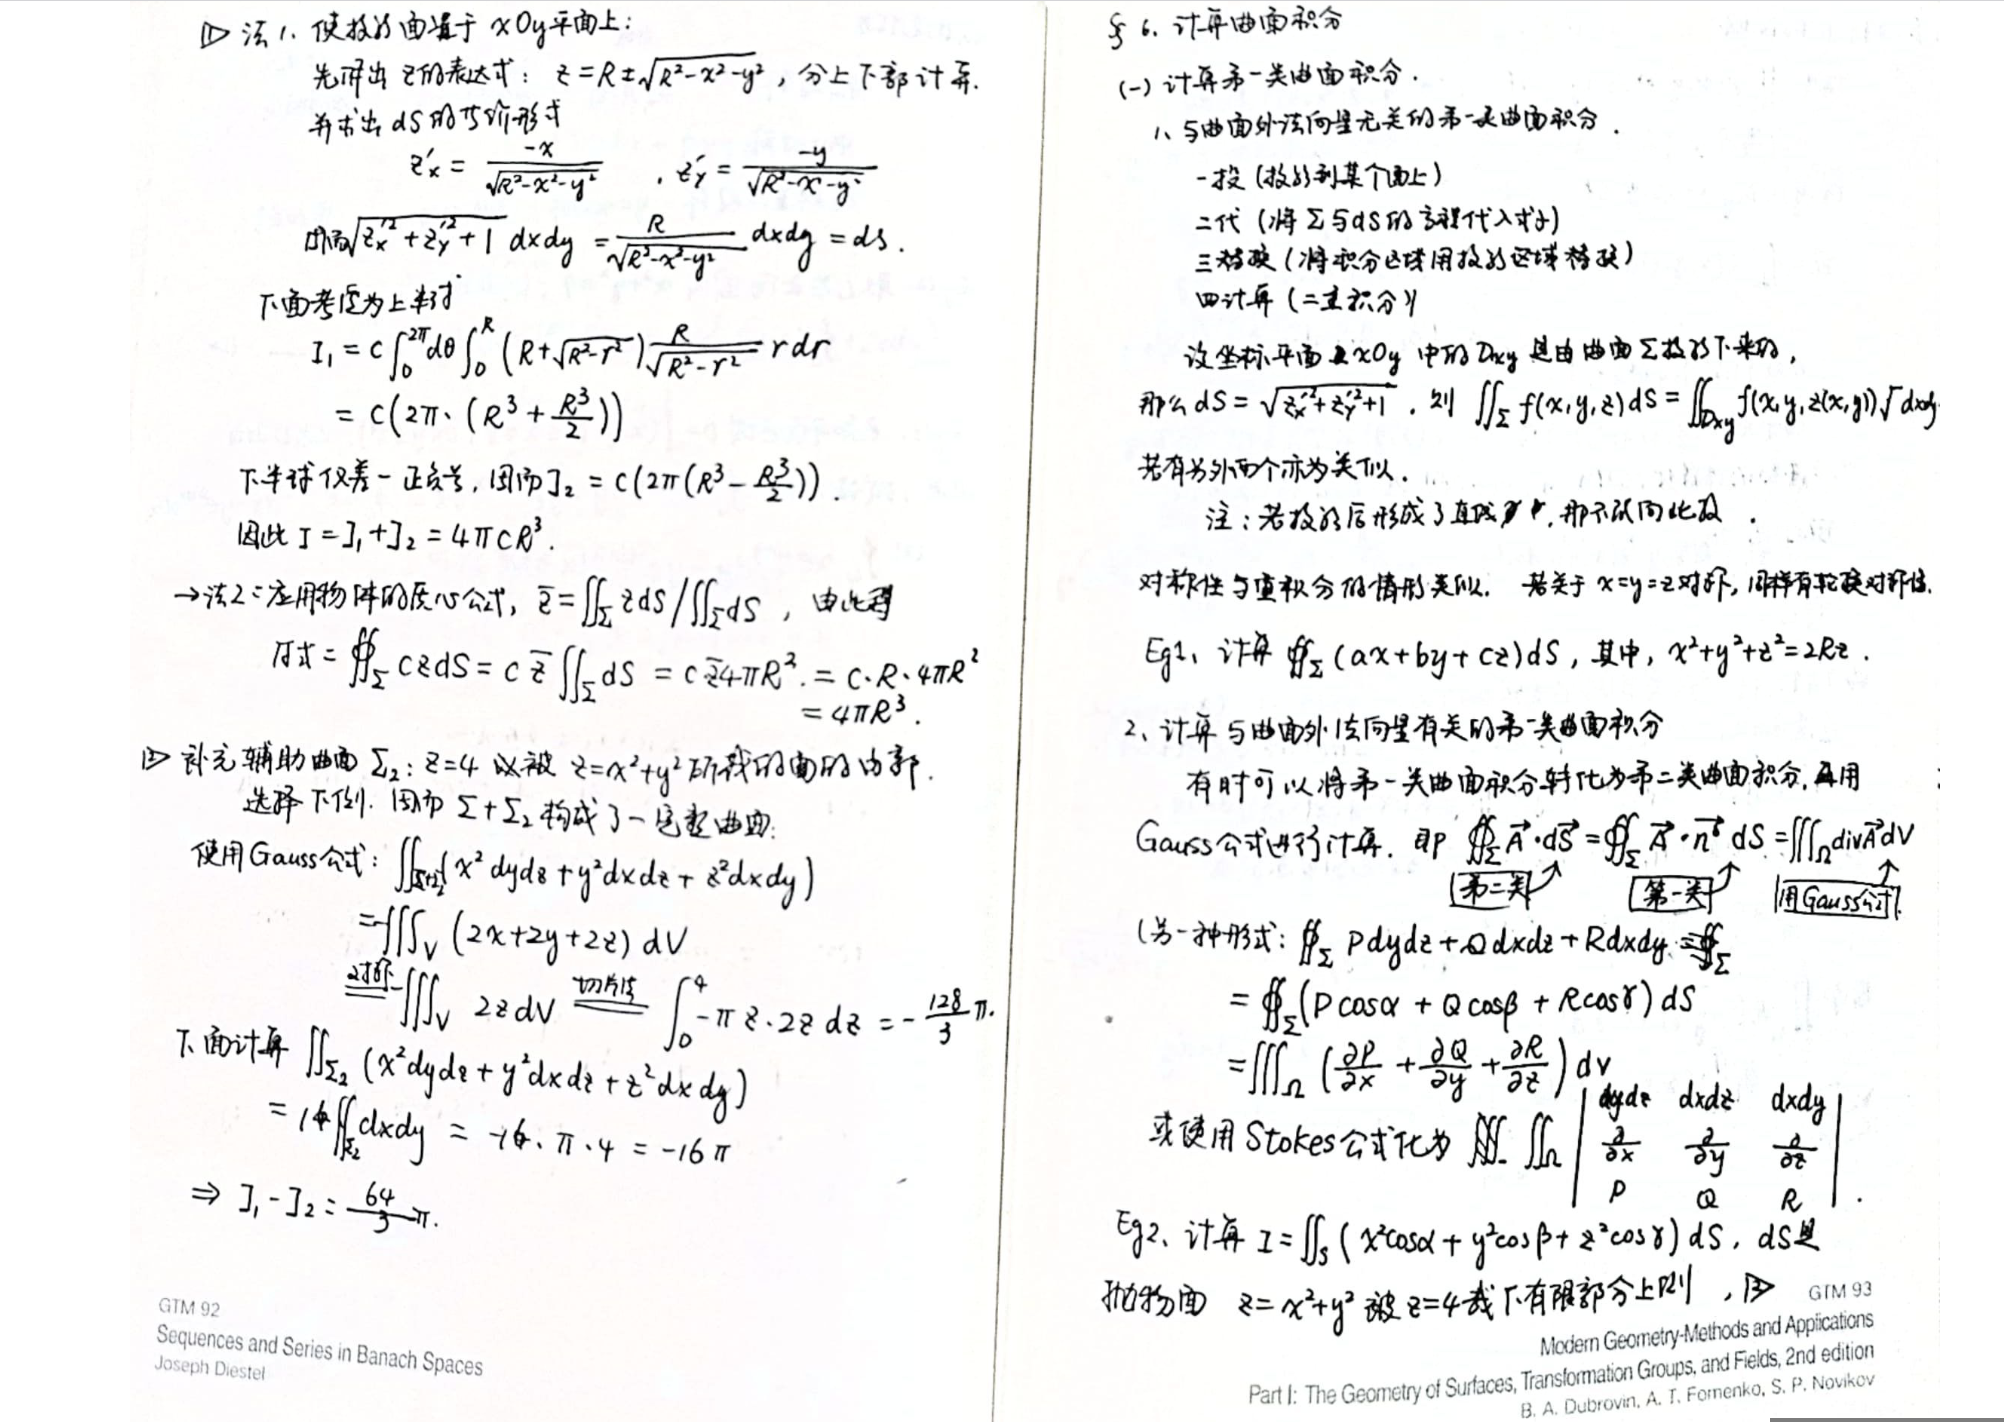 ① 法1. 使投影面置于 xOy平面上:
先解出 z的表达式: z=R±√(R²-x²-y²), 分上下部计算.
并求出 dS的等价形式
z'x = -x/√(R²-x²-y²) , z'y = -y/√(R²-x²-y²)
因而√(z'x²+z'y²+1) dxdy = R/√(R²-x²-y²) dxdy = dS.
下面考虑为上半球
I₁ = c∫₀^2π dθ ∫₀^R (R+√(R²-r²)) R/√(R²-r²) r dr
= c(2π·(R³+R³/2))
下半球仅差一正负号, 因而I₂ = c(2π(R³-R³/2)).
因此 I=I₁+I₂ = 4πcR³.
→法2: 应用物体的质心公式, z̄=∬_Σ zdS/∬_Σ dS, 由此得
原式 = ∯_Σ czdS = c z̄ ∬_Σ dS = c z̄ 4πR². = c·R·4πR²
= 4πR³.
② 补充辅助曲面 Σ₂: z=4 以被 z=x²+y² 所截的面的内部.
选择下侧. 因而 Σ+Σ₂ 构成了一完整曲面:
使用Gauss公式: ∬_Σ+Σ₂( x² dydz+y²dxdz+z²dxdy)
=-∭_V (2x+2y+2z) dV
对称 -∭_V 2zdV 切片法 ∫₀⁴ -πz·2z dz = -128/3 π.
下面计算 ∬_Σ₂ (x²dydz+y²dxdz+z²dxdy)
= 16∬_Σ₂ dxdy = -16·π·4 = -16π
⇒ I₁-I₂ = 64/3 π.
GTM 92
Sequences and Series in Banach Spaces
Joseph Diestel
§ 6. 计算曲面积分
(一) 计算第一类曲面积分.
1、与曲面外法向量无关的第一类曲面积分.
一投 (投影到某个面上)
二代 (将Σ与dS的方程代入式子)
三替换 (将积分区域用投影区域替换)
四计算 (二重积分)
设坐标平面 xOy 中的Dxy 是由曲面Σ投影下来的,
那么 dS=√(z'x²+z'y²+1) . 则 ∬_Σ f(x,y,z)dS=∬_Dxy f(x,y,z(x,y))√ dxdy.
若有另外两个亦为类似.
注: 若投影后形成了直线, 那不能向此投.
对称性与重积分的情形类似. 若关于 x=y=z对称, 同样有轮换对称性.
Eg1、计算 ∯_Σ (ax+by+cz)dS, 其中, x²+y²+z²=2Rz.
2、计算与曲面外法向量有关的第一类曲面积分
有时可以将第一类曲面积分转化为第二类曲面积分, 再用
Gauss公式进行计算. 即 ∯_Σ A⃗·dS⃗ =∯_Σ A⃗·n⃗° dS =∭_Ω divA⃗dV
第二类 第一类 用Gauss公式
(另一种形式: ∯_Σ Pdydz+Qdxdz+Rdxdy =∯_Σ
= ∯_Σ (Pcosα + Qcosβ + Rcosγ) dS
=∭_Ω (∂P/∂x + ∂Q/∂y + ∂R/∂z) dv
或使用Stokes公式化为 ∬_Ω | dydz dxdz dxdy
∂/∂x ∂/∂y ∂/∂z
P Q R | .
Eg2、计算 I=∬_S ( x²cosα+y²cosβ+z²cosγ) dS, dS是
抛物面 z=x²+y² 被z=4截下有限部分上侧, ②
GTM 93
Modern Geometry-Methods and Applications
Part I: The Geometry of Surfaces, Transformation Groups, and Fields, 2nd edition
B. A. Dubrovin, A. T. Fomenko, S. P. Novikov